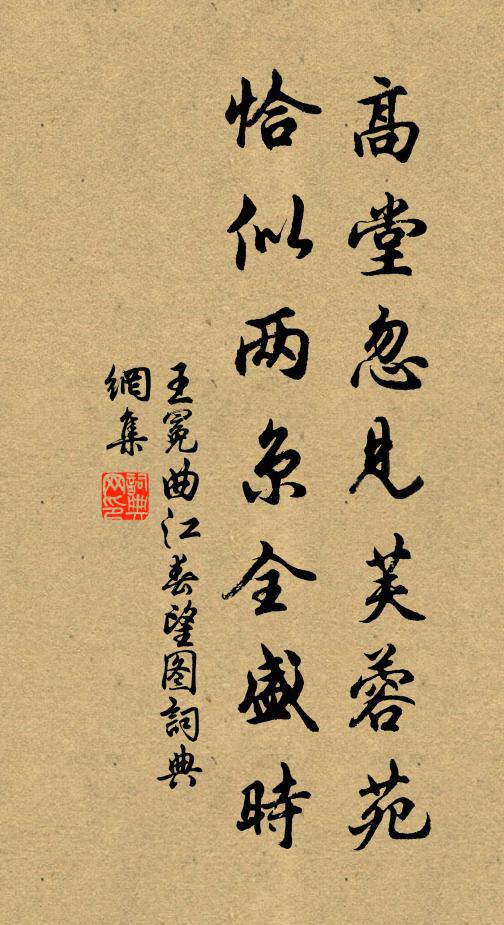 高堂忽見芙蓉苑
恰似两京全盛時
王冕曲江春望图詞典
網集
詞典
网印